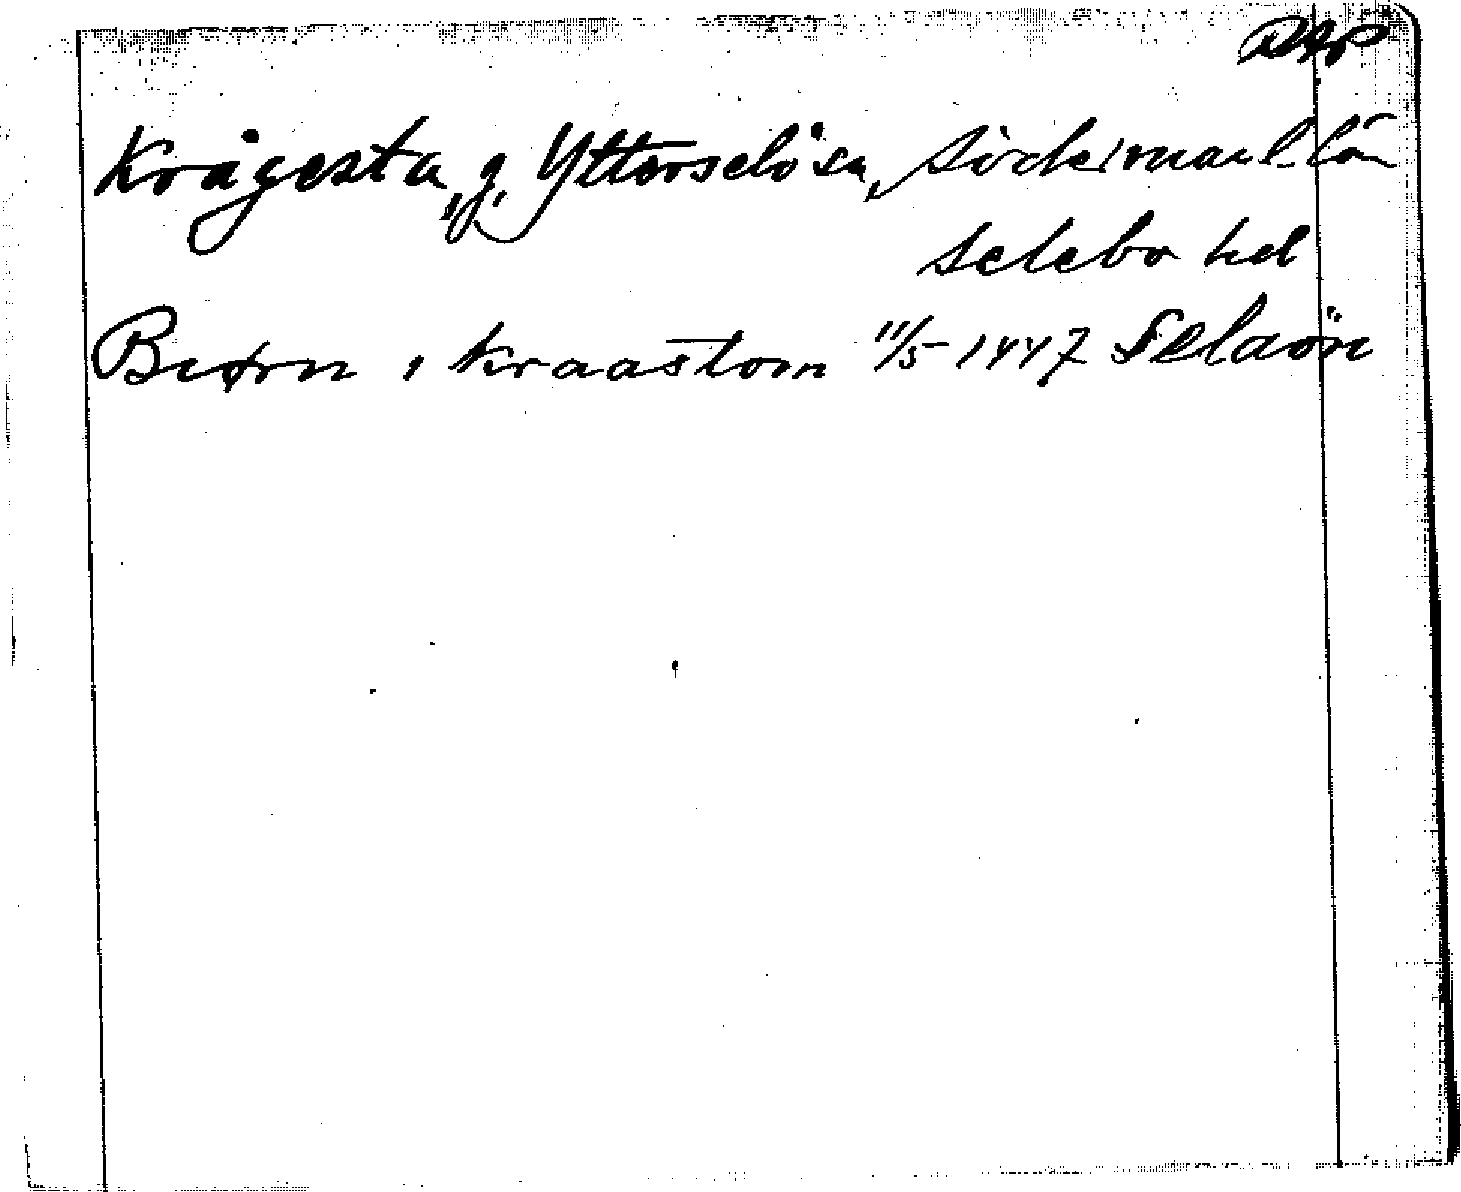 RAP
Krågesta, g, Ytterselö sn, Söderman l län
Selebo hd
Biørn i kraastom 11/5 1447 Selaön